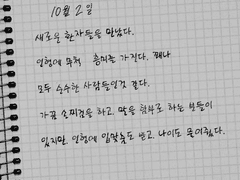 10월 2일
새로운 환자들을 만났다.
인형에 무척 흥미를 가진다. 꽤나
모두 순수한 사람들인것 같다.
가끔 손찌검을 하고, 말을 험하게 하는 분들이
있지만, 인형에 입맞춤도 받고, 나이도 줄어줬다.